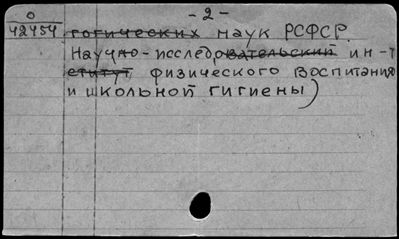 - 2 -
О
42454
гогических наук РСФСР.
Научно-исследовательский ин-т
ститут физического воспитания
и школьной гигиены)